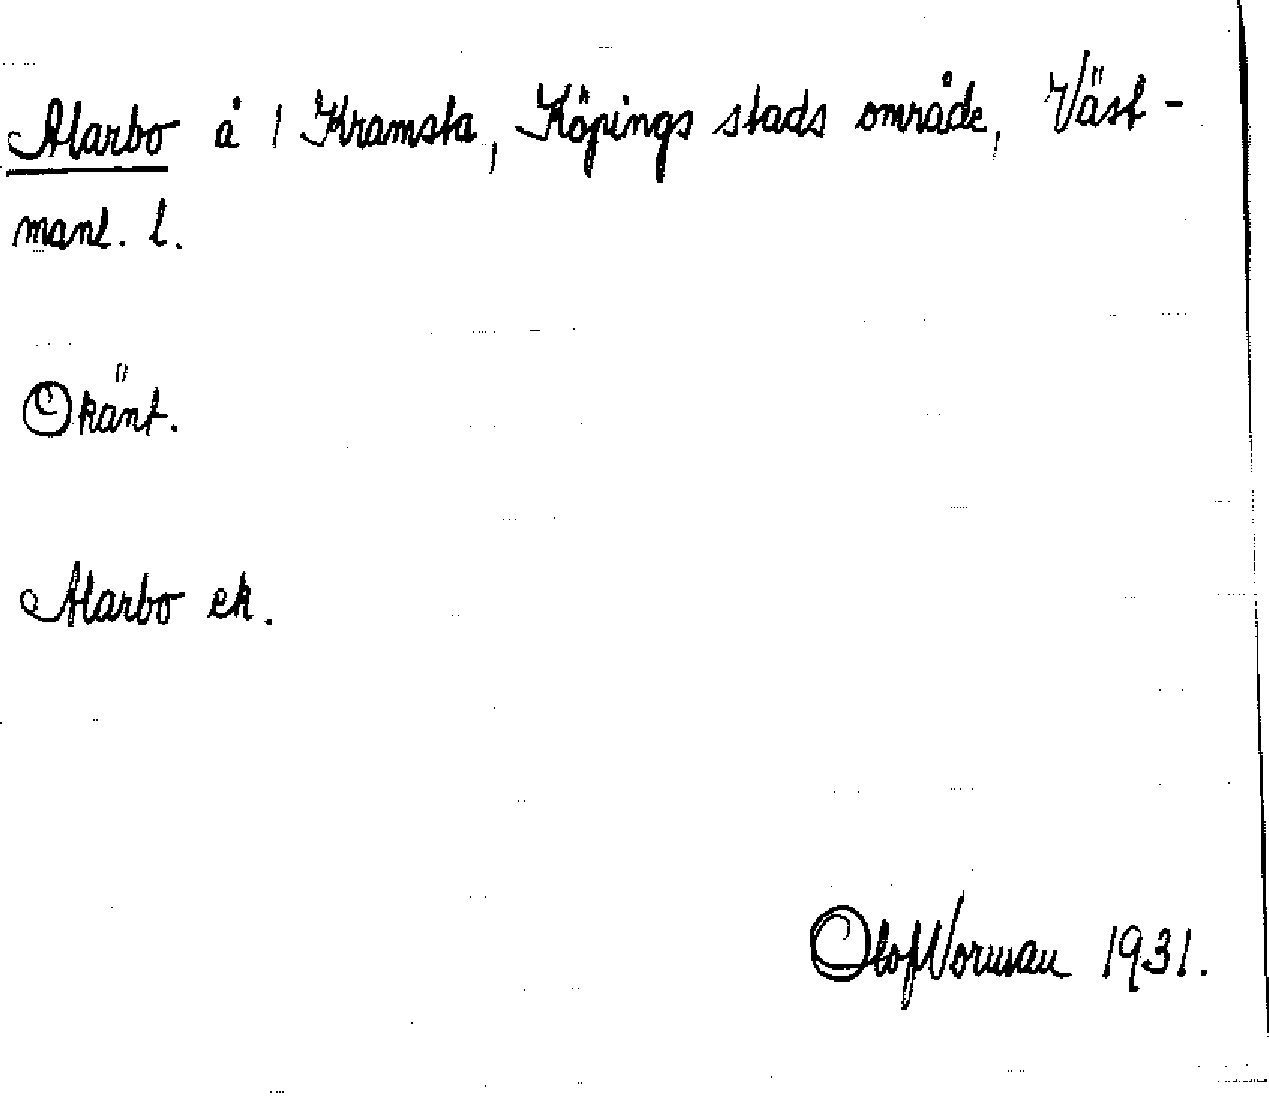 Alarbo å 1 Kramsta, Köpings stads område, Väst-
manl. l.
Okänt.
Alarbo ek.
Olof Norman 1931.